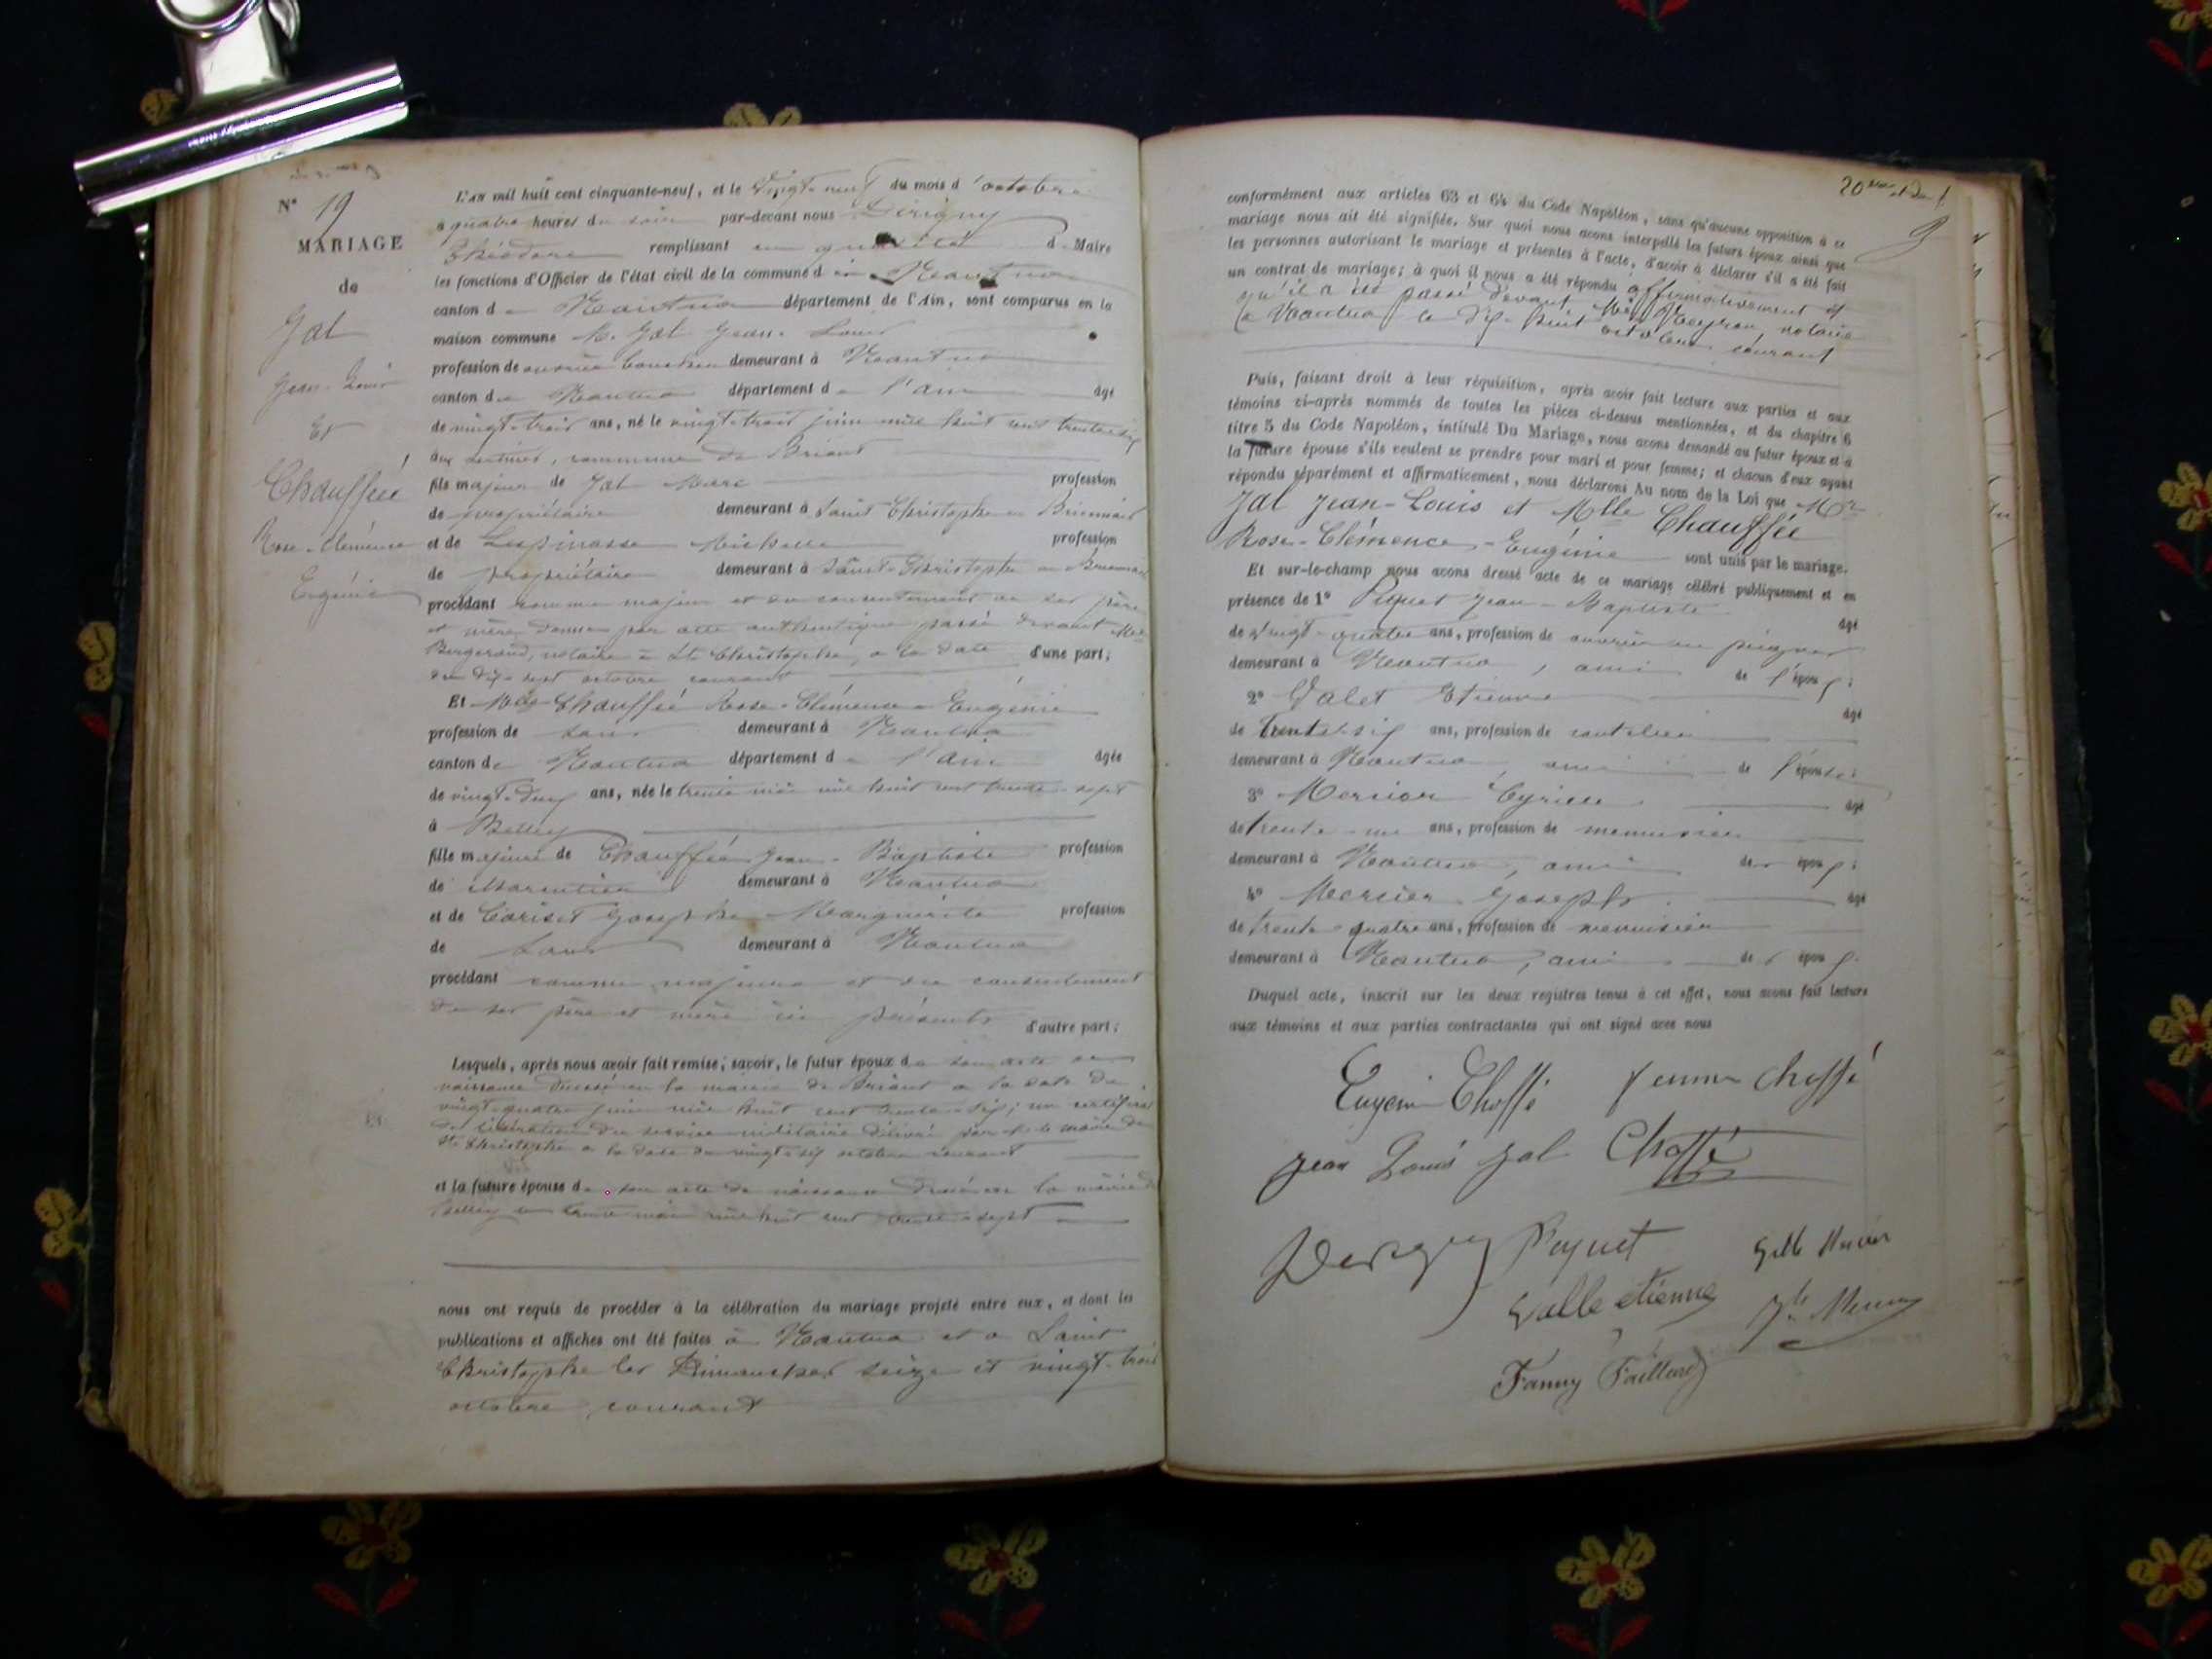 N° 19
MARIAGE
de
Jal
Jean-Louis
Et
Chauffée
Rose-Clémence
Eugénie
L'an mil huit cent cinquante-neuf, et le vingt-neuf du mois d'octobre
à quatre heures du soir par-devant nous Dérigny
Théodore remplissant en qualité de Maire
les fonctions d'Officier de l'état civil de la commune de Nantua
canton de Nantua département de l'Ain, sont comparus en la
maison commune M. Jal Jean-Louis
profession de ouvrier demeurant à Nantua
canton de Nantua département de l'ain âgé
de vingt-trois ans, né le vingt-trois juin mil huit cent trente-six
aux commune de Briant
fils majeur de Jal Marc profession
de propriétaire demeurant à Saint Christophe en Brionnais
et de Lespinasse Michelle profession
de propriétaire demeurant à Saint-Christophe en Brionnais
procédant comme majeur et du consentement de ses père
et mère donné par acte authentique passé devant Me
notaire à St Christophe, à la date d'une part;
du dix-sept octobre courant
Et Mlle Chauffée Rose-Clémence-Eugénie
profession de sans demeurant à Nantua
canton de Nantua département de l'ain âgée
de vingt-deux ans, née le trente mai mil huit cent trente-sept
à Belley
fille majeure de Chauffée Jean-Baptiste profession
de demeurant à Nantua
et de Josephe-Marguerite profession
de sans demeurant à Nantua
procédant comme majeure et du consentement
de ses père et mère ici présents d'autre part;
Lesquels, après nous avoir fait remise; savoir, le futur époux de son acte de
naissance dressé en la mairie de Briant à la date du
vingt-quatre juin mil huit cent trente-six; un certificat
de libération du service militaire délivré par M. le maire de
St Christophe à la date du vingt-six octobre courant
et la future épouse de son acte de naissance dressé en la mairie de
Belley le trente mai mil huit cent trente-sept
nous ont requis de procéder à la célébration du mariage projeté entre eux, et dont les
publications et affiches ont été faites à Nantua et à Saint
Christophe les Dimanches seize et vingt-trois
octobre courant
conformément aux articles 63 et 64 du Code Napoléon, sans qu'aucune opposition à ce
mariage nous ait été signifiée. Sur quoi nous avons interpellé les futurs époux ainsi que
les personnes autorisant le mariage et présentes à l'acte, d'avoir à déclarer s'il a été fait
un contrat de mariage; à quoi il nous a été répondu affirmativement et
qu'il a été passé devant Me Neyron, notaire
à Nantua le dix-huit octobre courant
Puis, faisant droit à leur réquisition, après avoir fait lecture aux parties et aux
témoins ci-après nommés de toutes les pièces ci-dessus mentionnées, et du chapitre 6
titre 5 du Code Napoléon, intitulé Du Mariage, nous avons demandé au futur époux et à
la future épouse s'ils veulent se prendre pour mari et pour femme; et chacun d'eux ayant
répondu séparément et affirmativement, nous déclarons Au nom de la Loi que Mr
Jal Jean-Louis et Mlle Chauffée
Rose-Clémence-Eugénie sont unis par le mariage.
Et sur-le-champ nous avons dressé acte de ce mariage célébré publiquement et en
présence de 1° Jean-Baptiste âgé
de vingt-quatre ans, profession de ouvrier en peignes
demeurant à Nantua, ami de l'époux;
2° Valet Etienne âgé
de trente-six ans, profession de
demeurant à Nantua, ami de l'épouse;
3° Mercier Cyrille âgé
de trente-un ans, profession de menuisier
demeurant à Nantua, ami des époux;
4° Mercier Joseph âgé
de trente-quatre ans, profession de menuisier
demeurant à Nantua, ami des époux.
Duquel acte, inscrit sur les deux registres tenus à cet effet, nous avons fait lecture
aux témoins et aux parties contractantes qui ont signé avec nous
Eugeni Choffé femme Choffé
jean Louis jal Choffé
Derigny Puquet
Valle etienne
Fanny